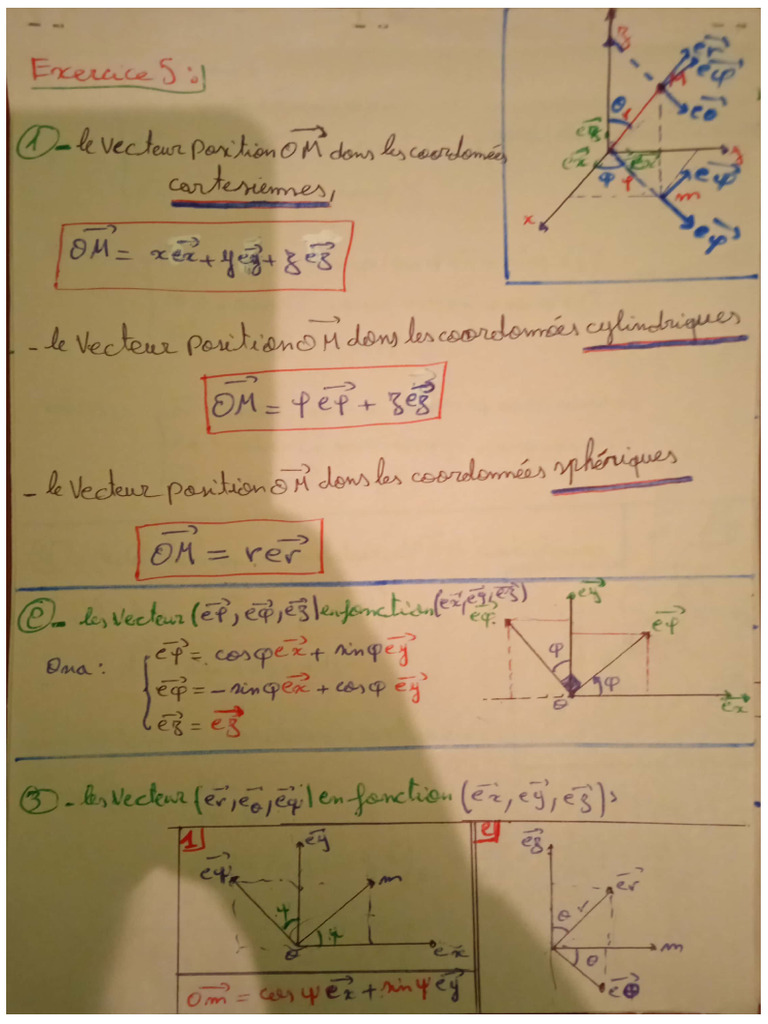 Exercice 5 :
① - le vecteur position OM dans les coordonnées
cartesiennes,
OM = x ex + y ey + z ez
- le vecteur position OM dans les coordonnées cylindriques
OM = ρ eρ + z ez
- le vecteur position OM dans les coordonnées sphériques
OM = r er
② - les vecteur (eρ, eφ, ez) en fonction (ex, ey, ez)
Ona :
eρ = cosφ ex + sinφ ey
eφ = - sinφ ex + cosφ ey
ez = ez
ey
eφ
eρ
φ
φ
O
ex
③ - les vecteur (er, eθ, eφ) en fonction (ex, ey, ez) :
1
ey
eφ
m
φ
φ
O
ex
Om = cos φ ex + sin φ ey
2
ez
er
θ
r
m
θ
eθ
z
er
M
eφ
eθ
θ
r
ez
ex
φ
ρ
eφ
m
eρ
x